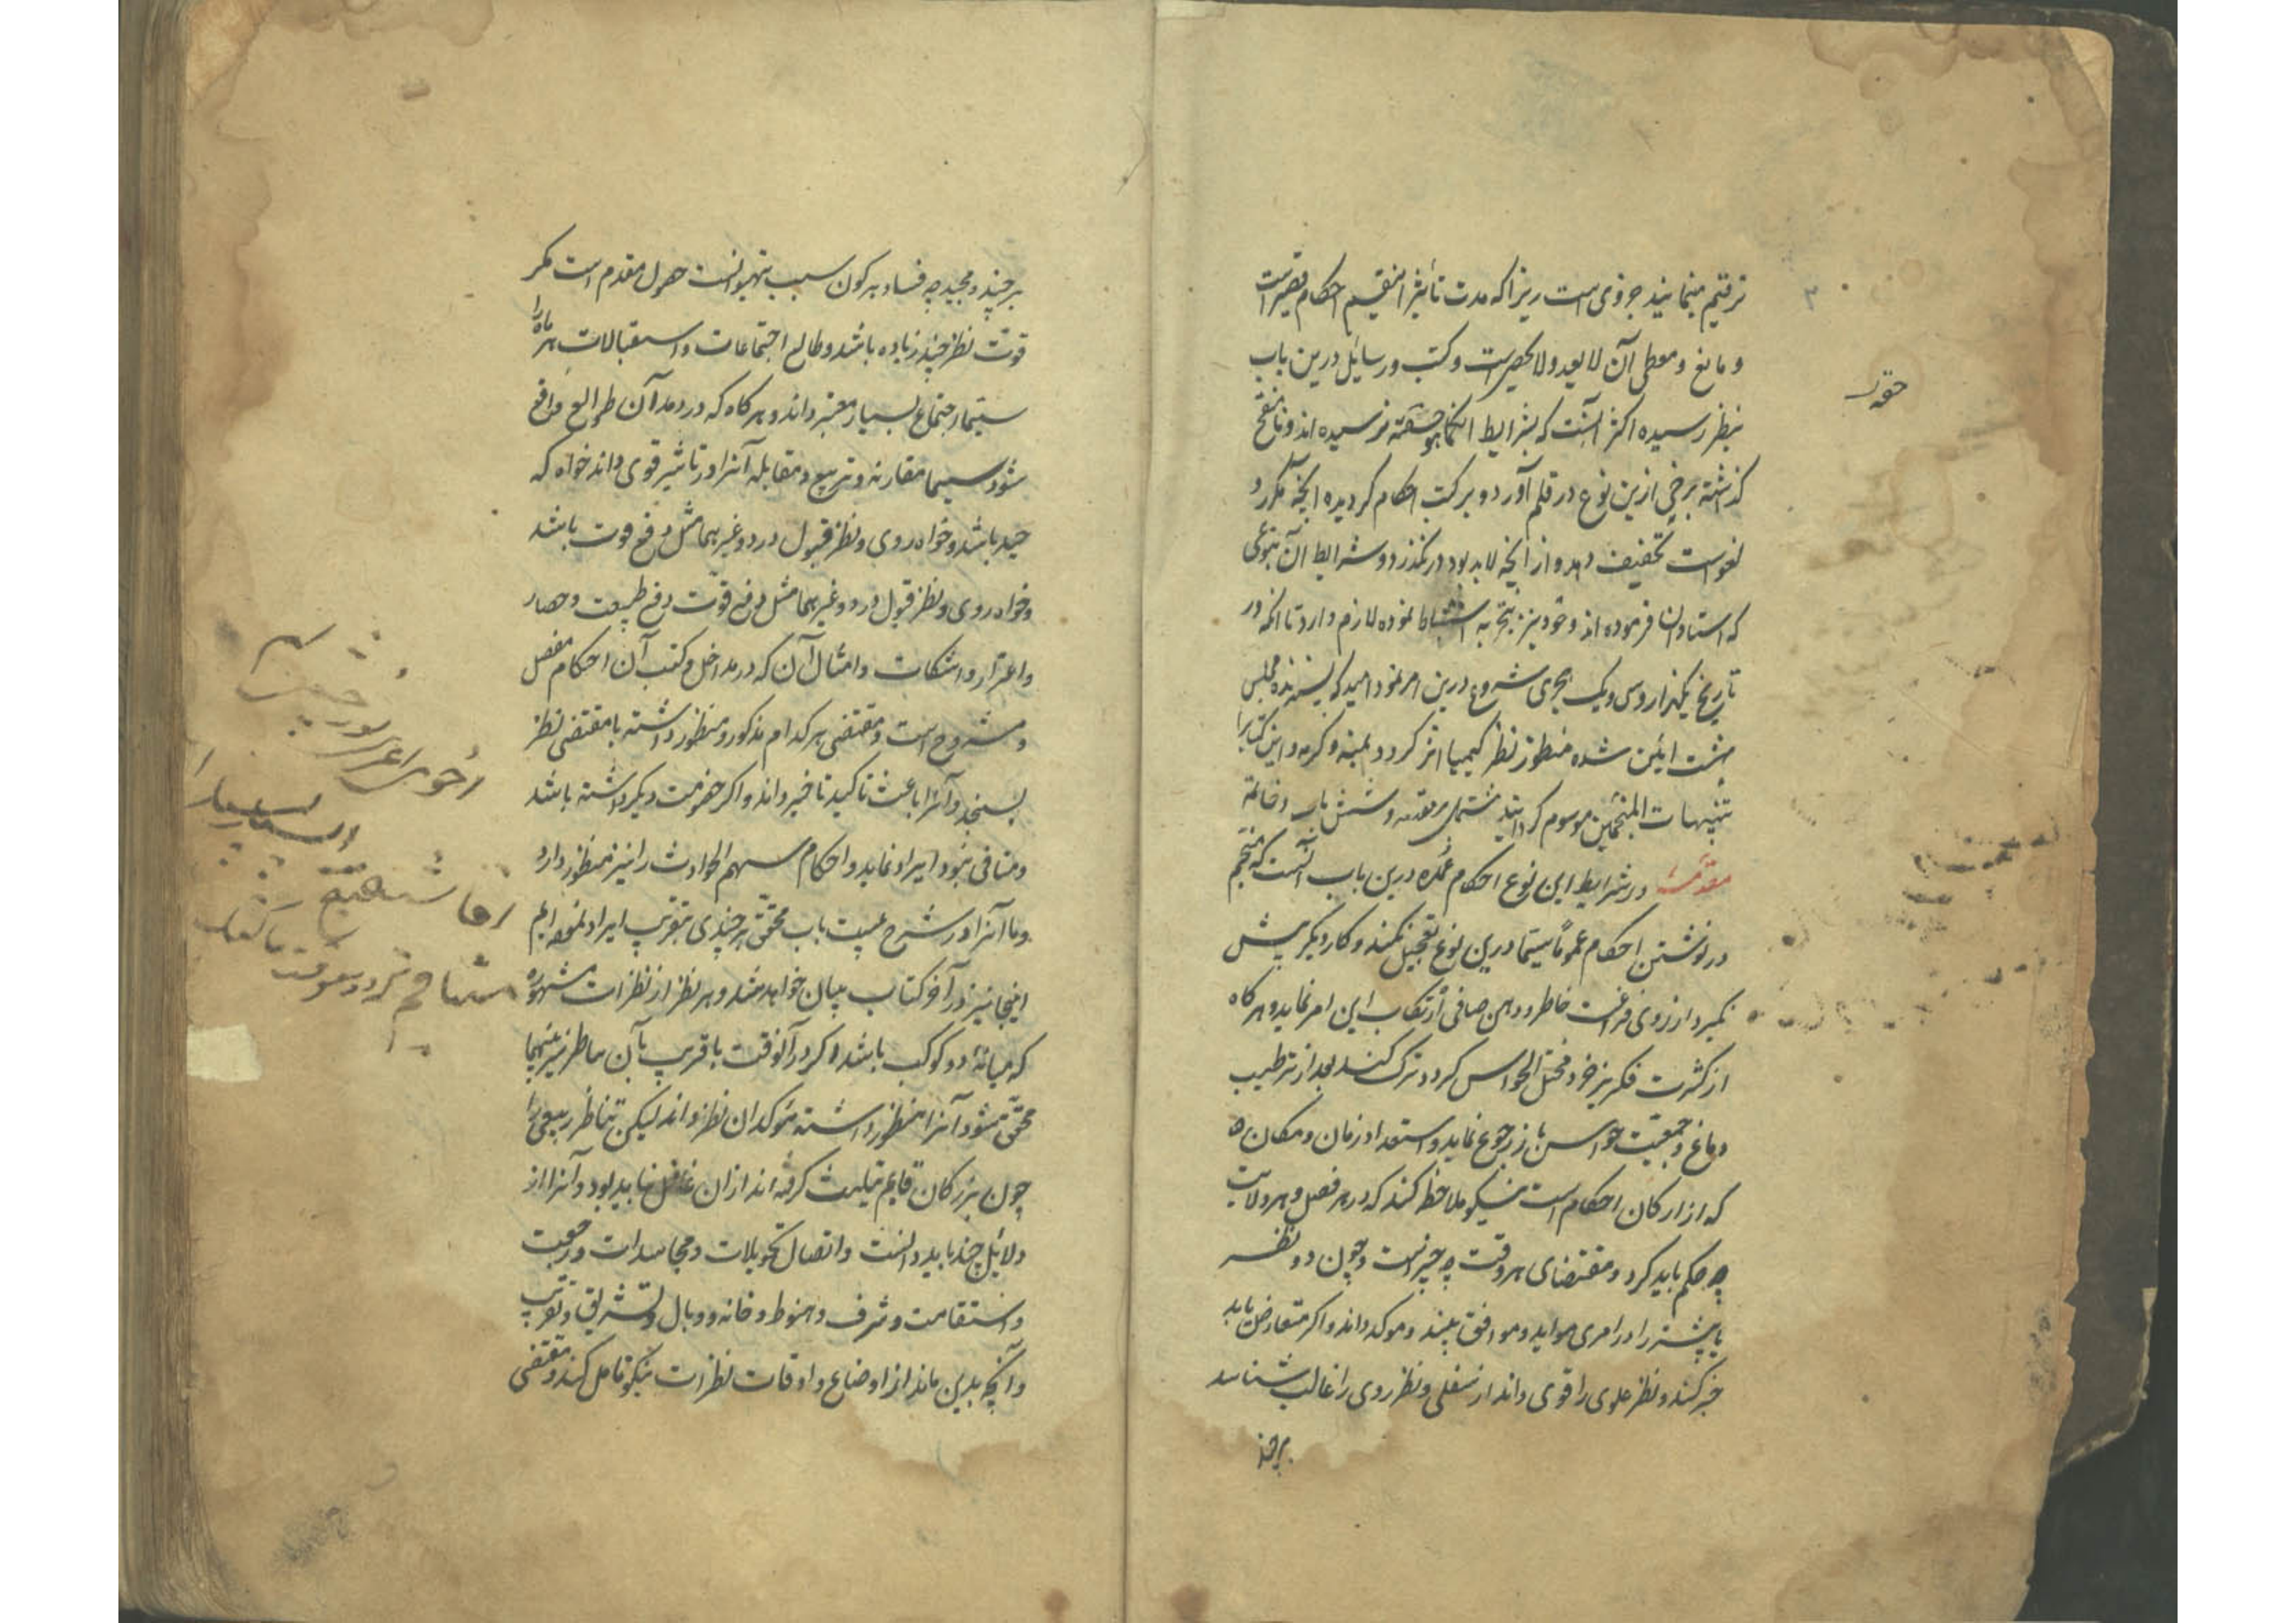 ترقیم مینمایند جزوی است زیرا که مدت تأثیر اینقسم احکام قصیر است
و مانع و معطی آن لا یعد و لا یحصی است و کتب و رسایل درین باب
بنظر رسیده اکثر آنست که بشرایط کما هو حقه نرسیده اند و نامنقح
گذشته برخی ازین نوع در قلم آورد و بر کتب احکام گردیده آنچه مکرر و
لغو است تخفیف دهد و از آنچه لابد بود درنگذرد و شرایط آن بنوعی
که استادان فرموده اند و خود نیز بتجربه استنباط نموده لازم دارد تا آنکه در
تاریخ یکهزار و سی و یک هجری شروع درین امر نمود امید که پسندیده مجلس
بهشت آیین شده منظور نظر کیمیا اثر گردد بمنه و کرمه و این کتابرا
بتنبیهات المنجمین موسوم گردانید مشتمل بر مقدمه و شش باب و خاتمه
مقدمه در شرایط این نوع احکام عمده درین باب آنست که منجم
در نوشتن احکام عموماً سیما درین نوع تعجیل نکند و کار دیگر پیش
نگیرد از روی فراغت خاطر و ذهن صافی ارتکاب این امر نماید و هرگاه
از کثرت فکر بیخود و مختل الحواس گردد ترک کند بعد از ترطیب
دماغ و جمعیت حواس باز رجوع نماید و استعداد زمان و مکان
که از ارکان احکام است نیکو ملاحظه کند که در هر فصل و هر ولایت
چه حکم باید کرد و مقتضای هر وقت چه چیز است و چون دو نظر
یا بیشتر را در امری موید و موافق بیند و موکد داند و اگر متعارض یابد
جبر کند و نظر علوی را قوی داند از سفلی و نظر ردی را غالب شناسد
هرچند
حقه
۳
هر چند و مجید چه فساد بر کون سبب حصول مقدم است مگر
قوت نظر جید زیاده باشد و طالع اجتماعات و استقبالات هر ماه را
سیما اجتماع بسیار معتبر داند و هرگاه که در مد آن طوالع واقع
شود سیما مقارنه و تربیع و مقابله آنرا در تاثیر قوی داند خواه که
جید باشد و خواه ردی و نظر قبول و رد و غیرهما مثل دفع قوت باشد
و خواه ردی و نظر قبول و رد و غیرهما مثل دفع قوت دفع طبیعت و حصار
و اعتزاز و انتکاث و امثال آن که در مداخل و کتب آن احکام مفصل
و مشروح است و مقتضی هر کدام مذکور و منظور داشته با مقتضی نظر
بسنجد و آنرا باعث تاکید تاخیر داند و اگر خصومت دیگر داشته باشد
و منافی نبود ایراد نماید و احکام سهم الحوادث را نیز منظور دارد
و ما آنرا در شرح بیست باب محقق هر چندی بتقریب ایراد نموده ایم
اینجا نیز در آخر کتاب بیان خواهد شد و هر نظر از نظرات مشهوره
که میانه دو کوکب باشد و اگر در آنوقت یا قریب بآن تناظر نیز بینهما
محقق شود آنرا منظور داشته موکد آن نظر داند لیکن تناظر ربیعی را
چون بزرگان قایم تثلیث گرفته اند ازان غافل نباید بود و آنرا از
دلائل جید باید دانست و اتصال تحویلات و مجاسدات و رجعت
و استقامت و شرف و هبوط و خانه و وبال و تشریق و تغریب
و آنچه بدین ماند از اوضاع و اوقات نظرات نیکو تامل کند و مقتضی